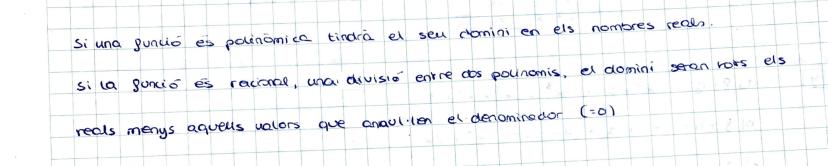 Si una funció és polinòmica tindrà el seu domini en els nombres reals.
si la funció és racional, una divisió entre dos polinomis, el domini seran tots els
reals menys aquells valors que anaul·len el denominador (=0)